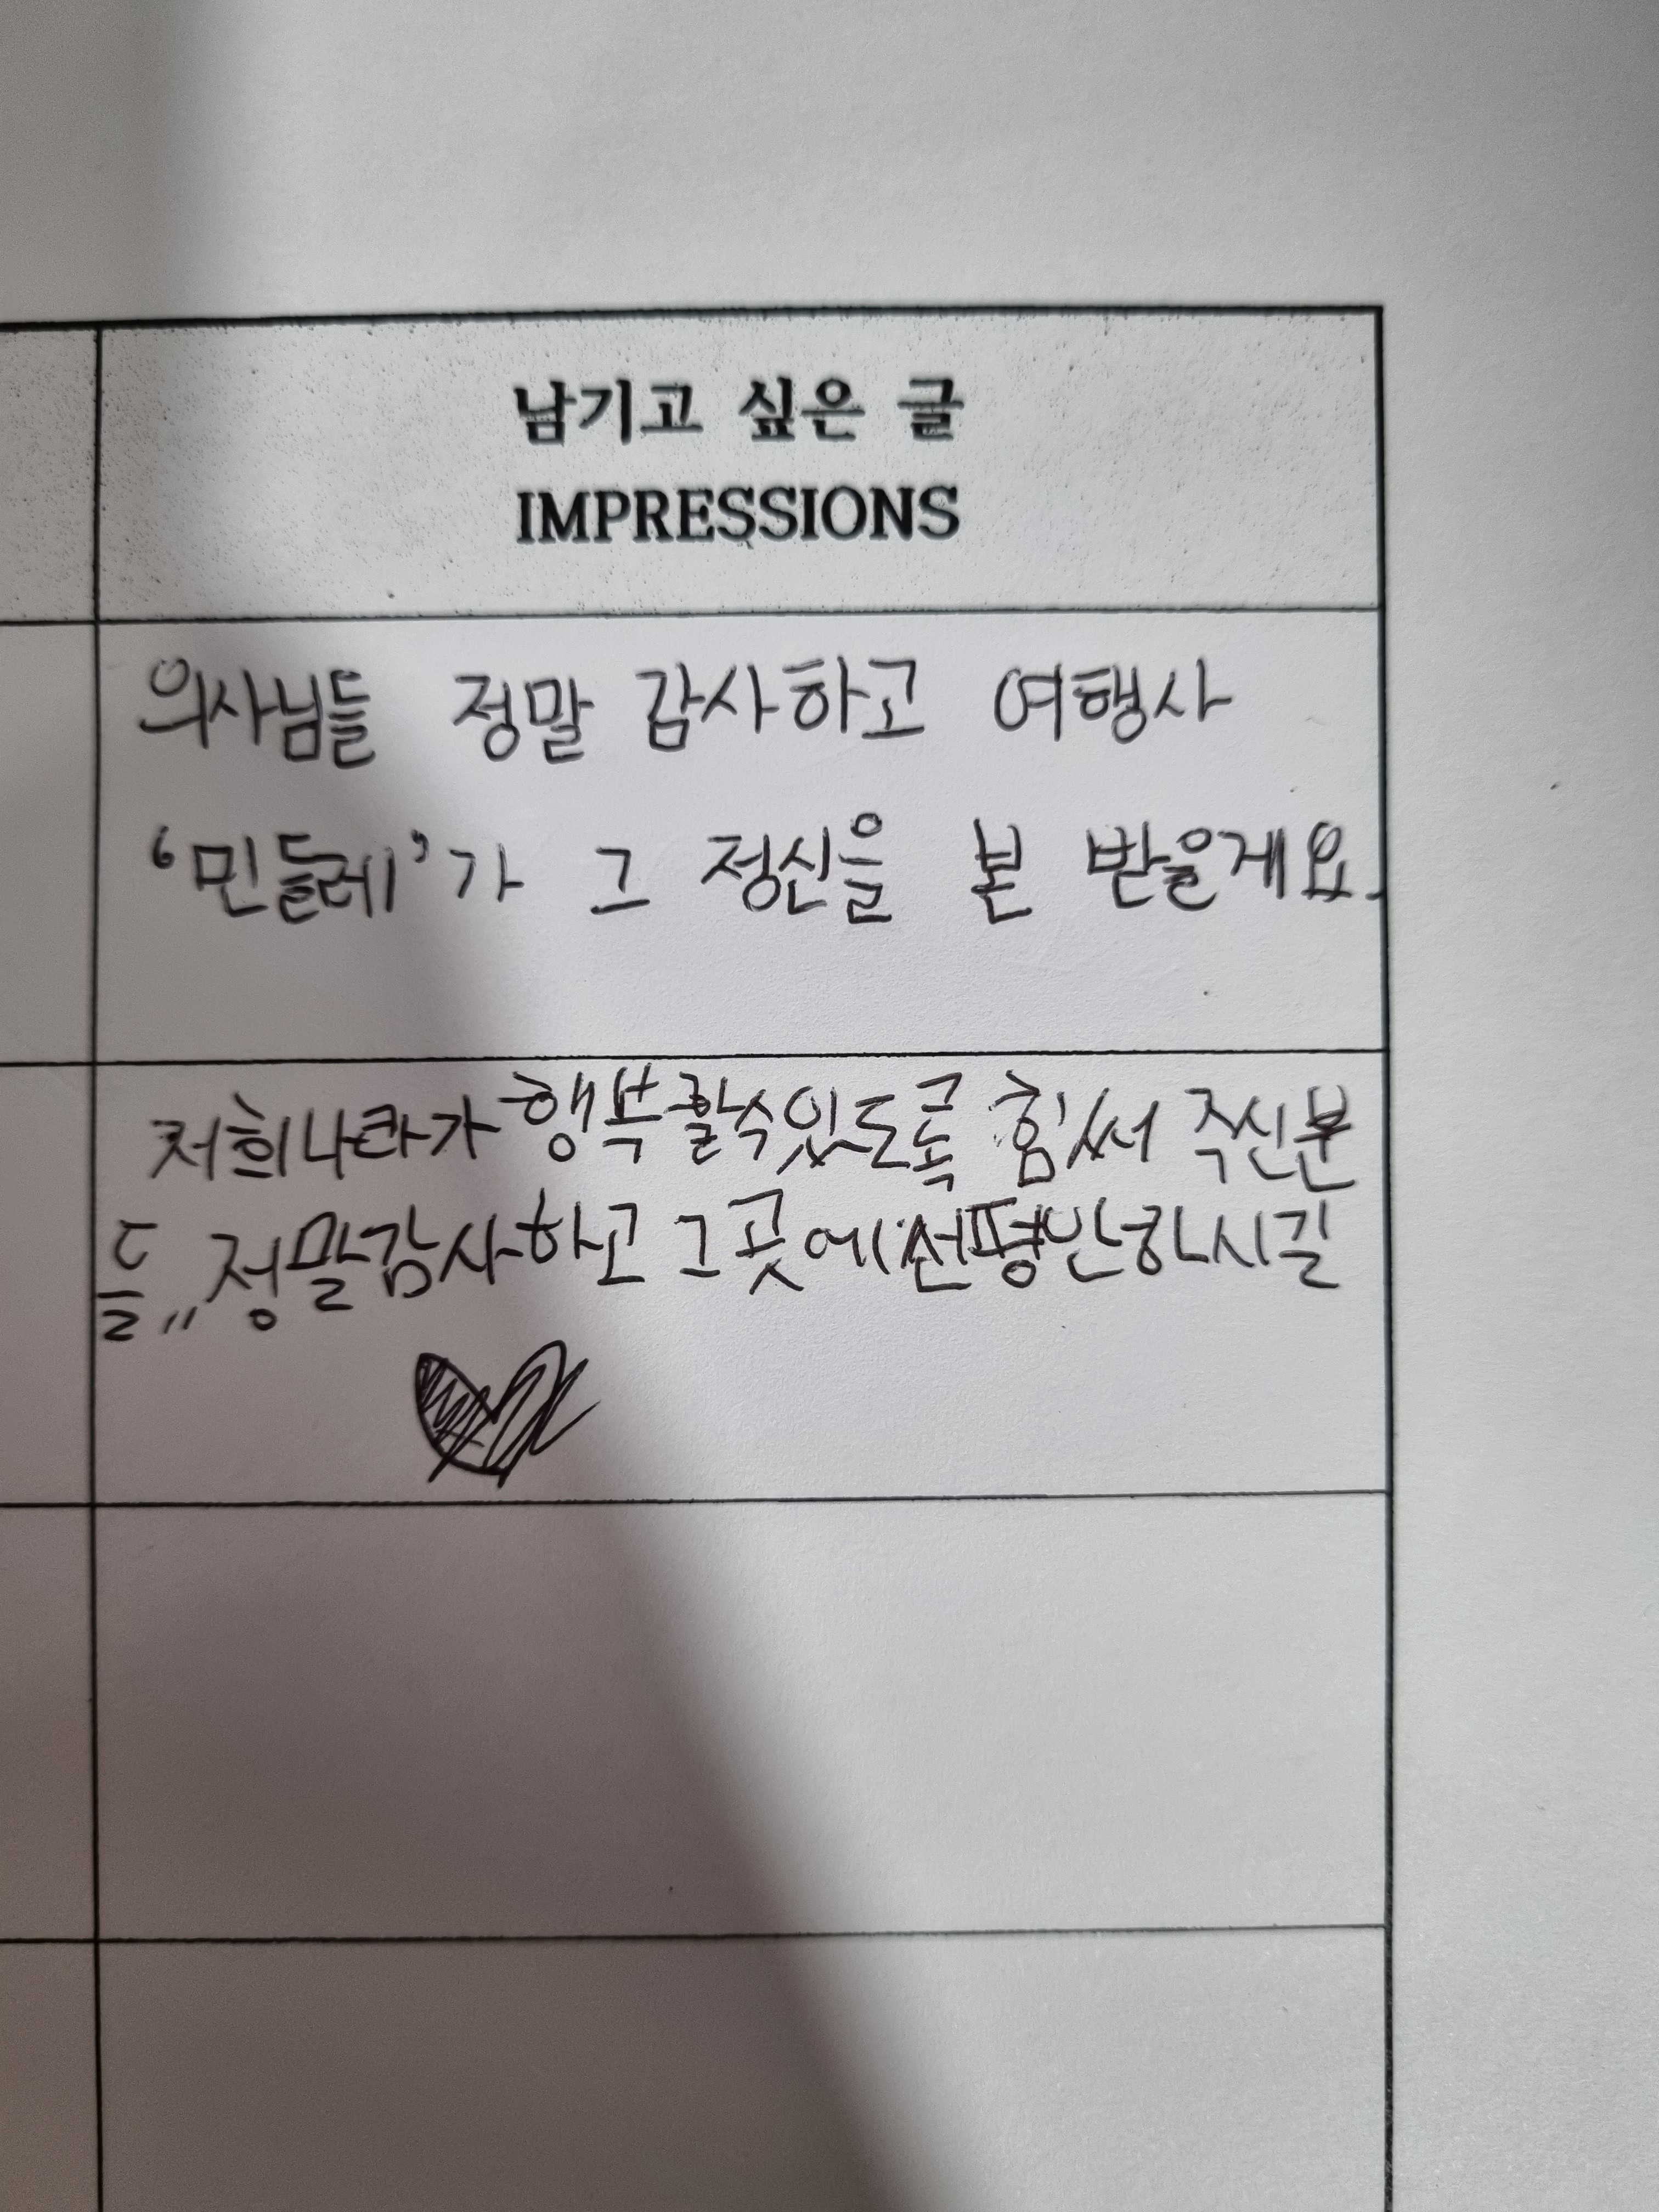 남기고 싶은 글
IMPRESSIONS
의사님들 정말 감사하고 여행사
‘민들레’가 그 정신을 본 받을게요.
저희나라가 행복할수있도록 힘써 주신분
들,, 정말감사하고 그곳에선평안하시길